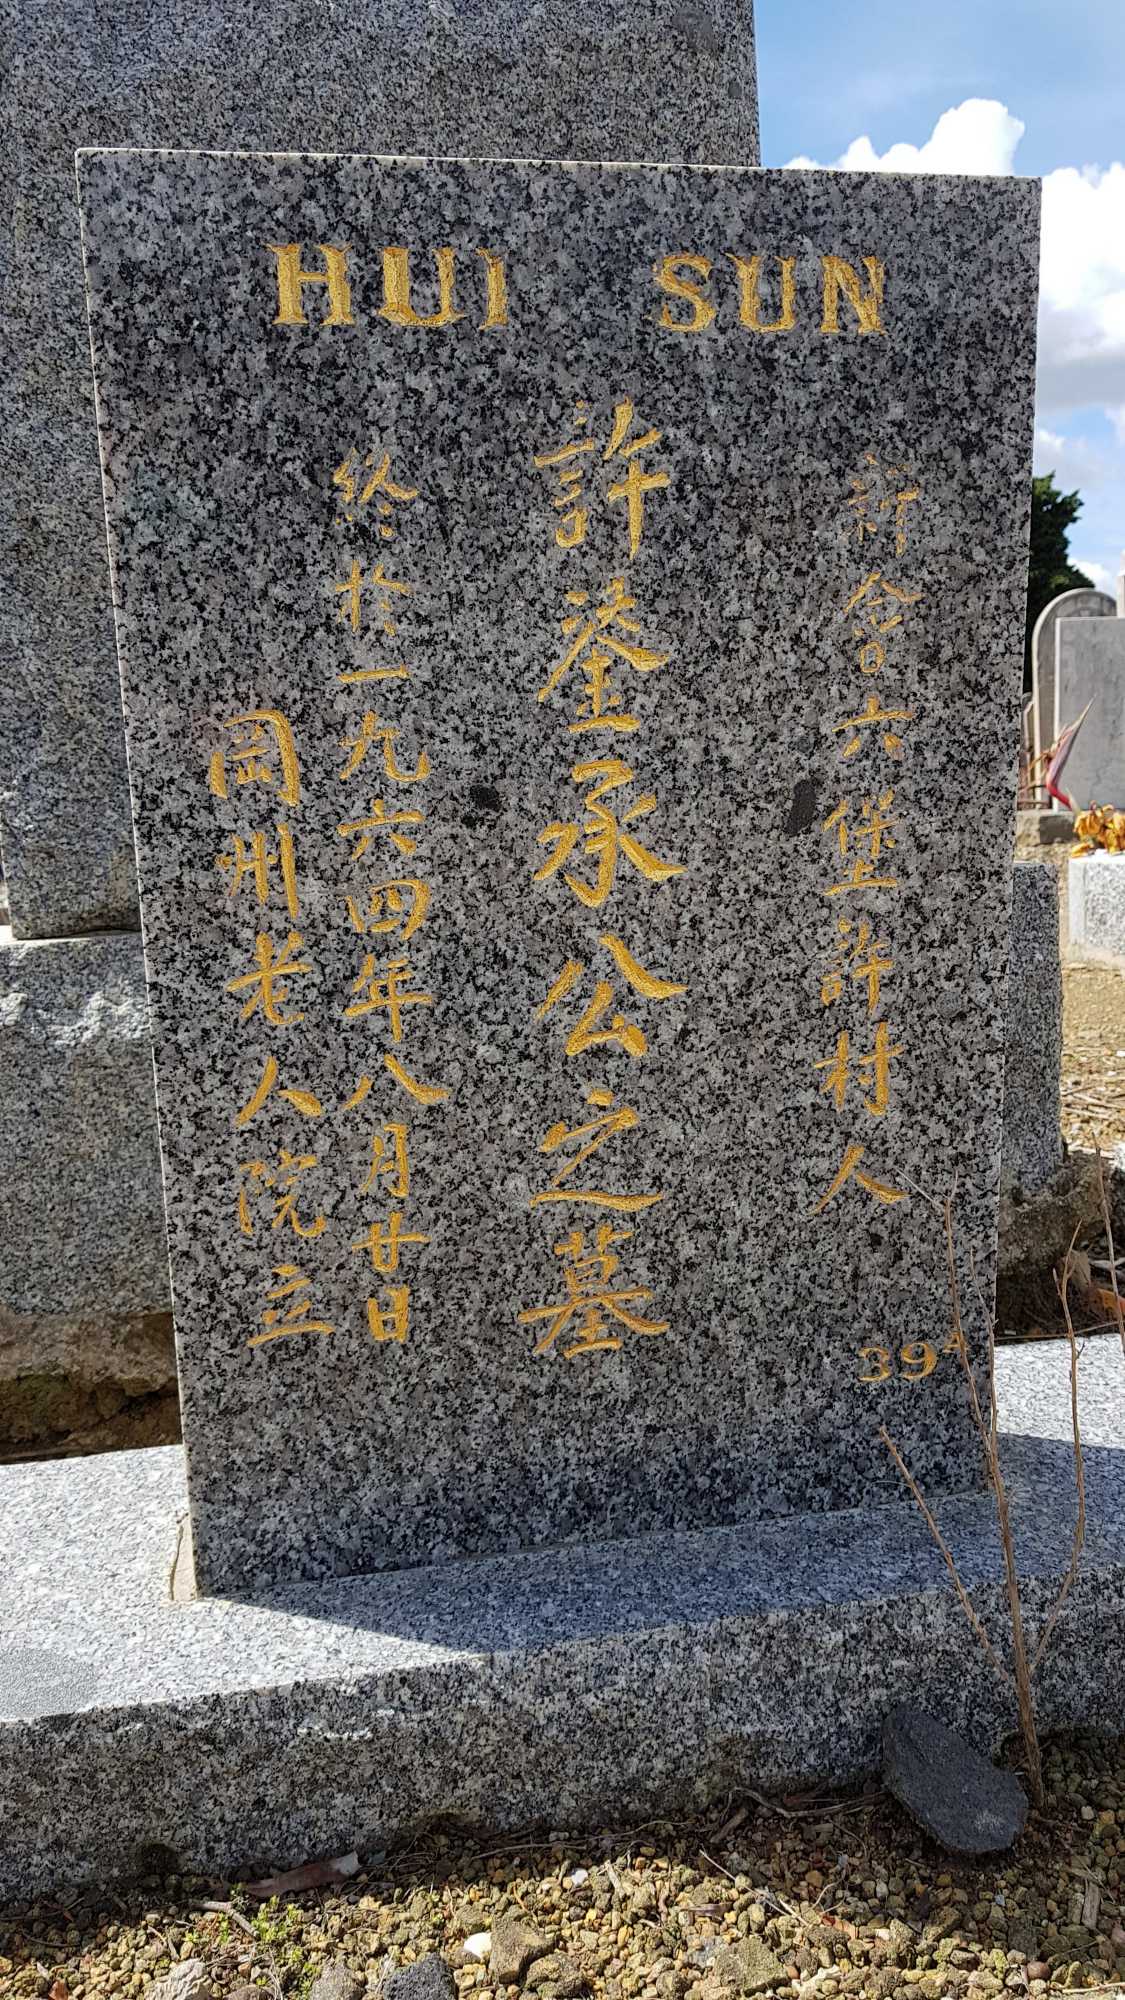 HUI SUN
新会六堡許村人
許鎏承公之墓
終於一九六四年八月廿日
岡州老人院立
39